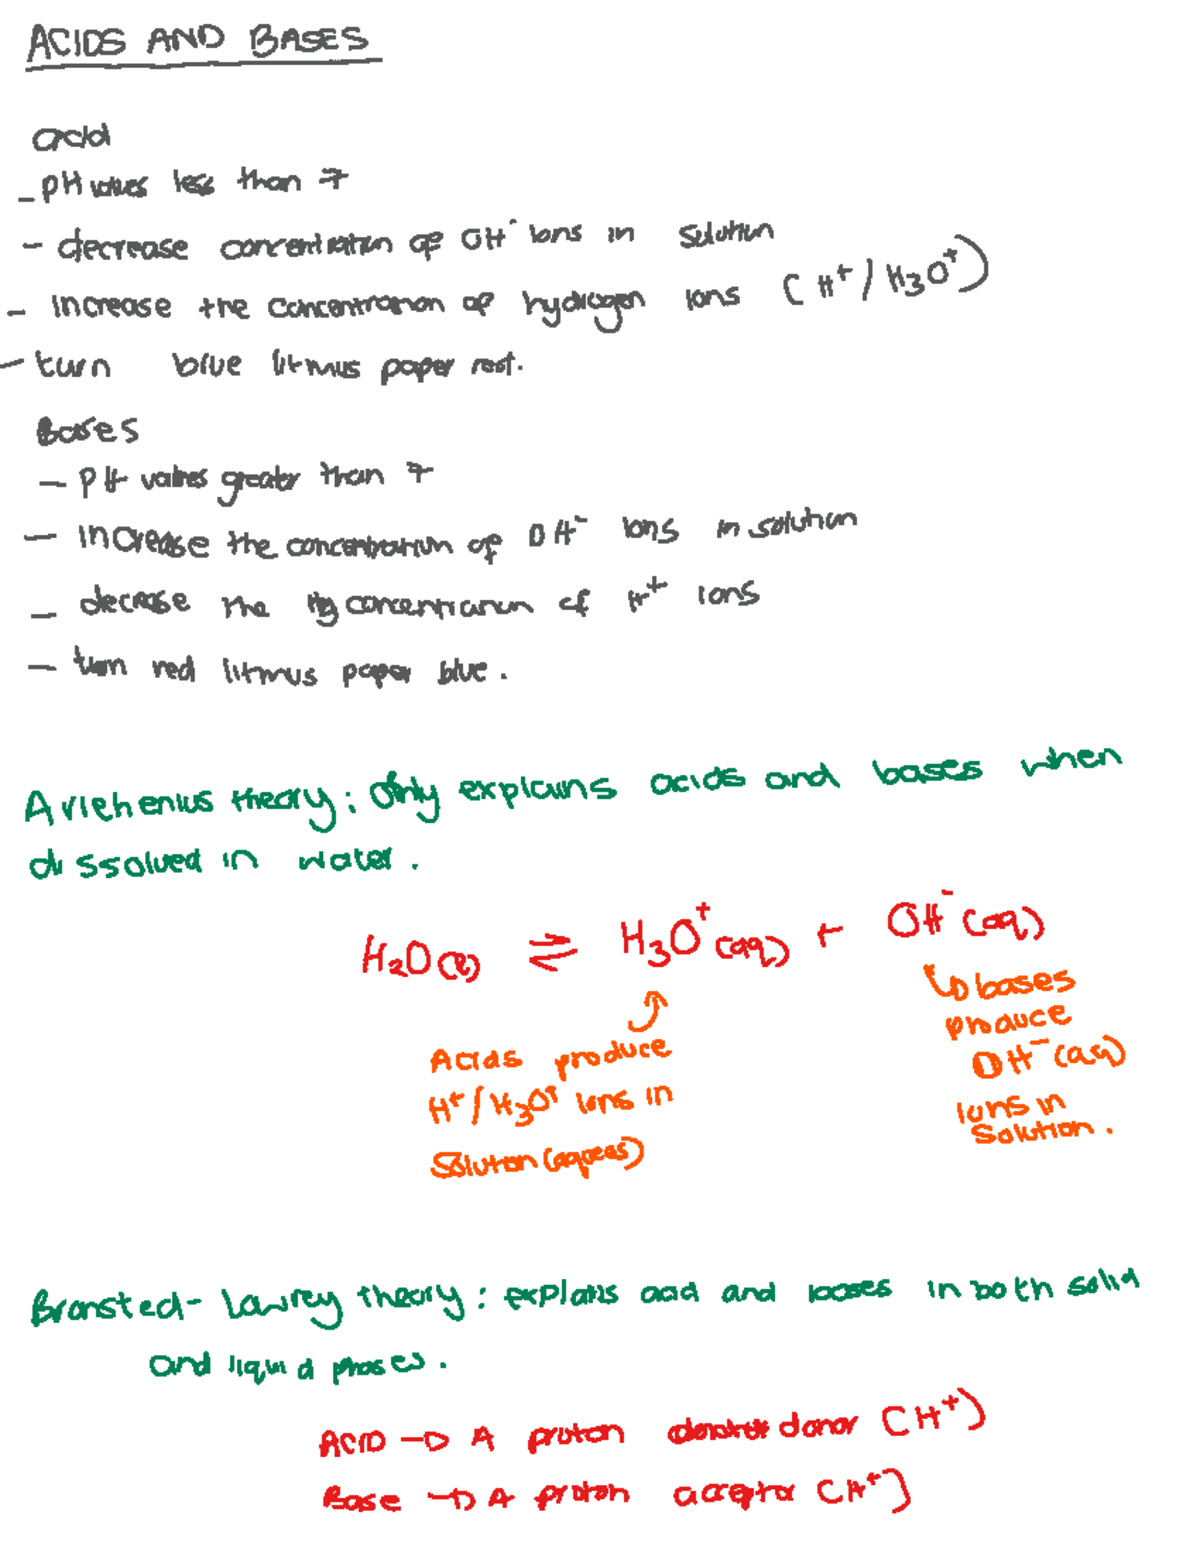 ACIDS AND BASES
acid
- pH values less than 7
- decrease concentration of OH⁻ ions in solution
- increase the concentration of hydrogen ions (H⁺/H₃O⁺)
- turn blue litmus paper
Bases
- pH values greater than 7
- increase the concentration of OH⁻ ions in solution
- decrease the concentration of H⁺ ions
- turn red litmus paper blue.
Arrehenius theory: Only explains acids and bases when
dissolved in water.
H₂O(l) ⇌ H₃O⁺(aq) + OH⁻(aq)
Acids produce
H⁺/H₃O⁺ ions in
Solution (aqueas)
↳ bases
produce
OH⁻(aq)
ions in
Solution.
Bronsted-Lowrey theory: explains acid and bases in both solid
and liquid phases.
ACID → A proton donor (H⁺)
Base → A proton acceptor (H⁺)